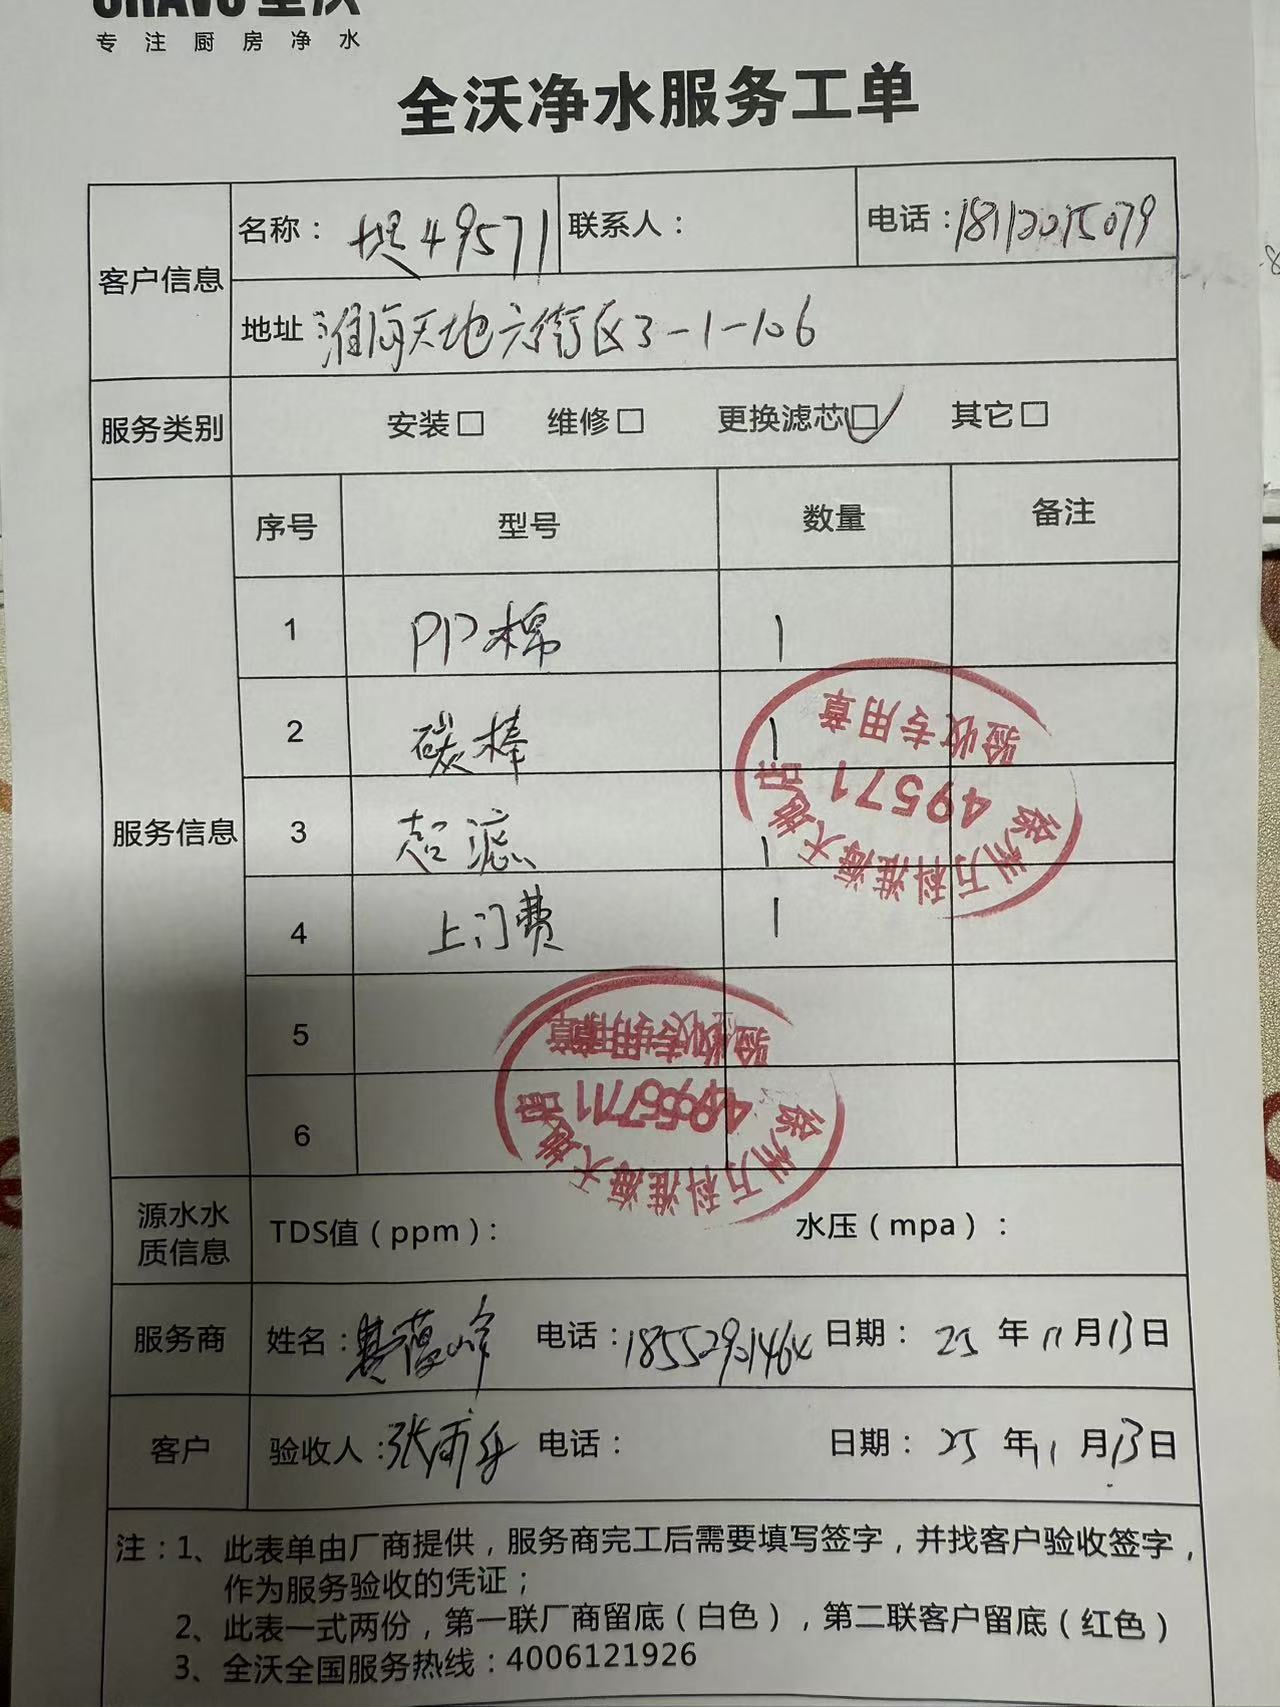 全沃
专注厨房净水
全沃净水服务工单
客户信息
名称： 堤49571
联系人：
电话：18112015079
地址 淮海天地六街区3-1-106
服务类别
安装□ 维修□ 更换滤芯□✓ 其它□
服务信息
序号 型号 数量 备注
1 PP棉 1
2 碳棒 1
3 超滤 1
4 上门费 1
5
6
徐州万科淮海天地店
49571
验收专用章
徐州万科淮海天地店
49571
验收专用章
源水水质信息
TDS值（ppm）： 水压（mpa）：
服务商
姓名： 电话：18552901464 日期： 25 年 11 月 13 日
客户
验收人：张 电话： 日期： 25 年 11 月 13 日
注：1、此表单由厂商提供，服务商完工后需要填写签字，并找客户验收签字，
作为服务验收的凭证；
2、此表一式两份，第一联厂商留底（白色），第二联客户留底（红色）
3、全沃全国服务热线：4006121926